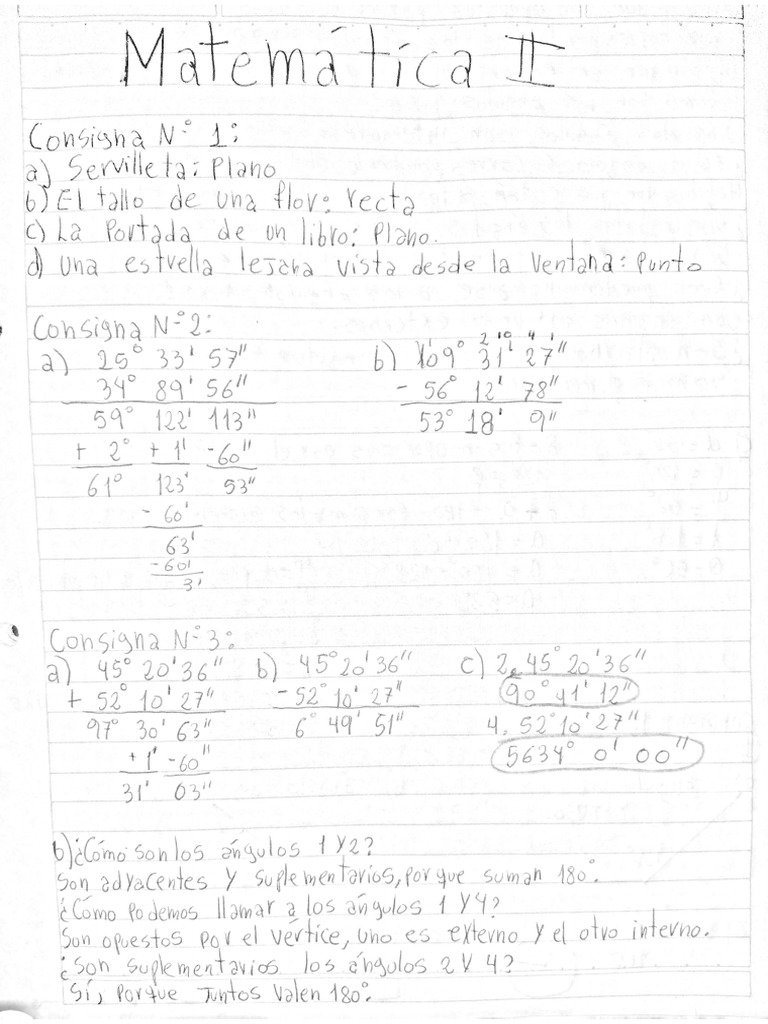 Matemática II
Consigna N° 1:
a) Servilleta: Plano
b) El tallo de una flor: recta
c) La Portada de un libro: Plano.
d) Una estrella lejana vista desde la ventana: Punto
Consigna N° 2:
a) 25° 33' 57"
34° 89' 56"
59° 122' 113"
+ 2° + 1' -60"
61° 123' 53"
- 60'
63'
-60'
3'
b) 109° 31' 27"
- 56° 12' 78"
53° 18' 9"
Consigna N° 3:
a) 45° 20' 36"
+ 52° 10' 27"
97° 30' 63"
+1' -60"
31' 03"
b) 45° 20' 36"
- 52° 10' 27"
6° 49' 51"
c) 2. 45° 20' 36"
90° 41' 12"
4. 52° 10' 27"
5634° 0' 00"
b) ¿Cómo son los ángulos 1 y 2?
Son adyacentes y suplementarios, porque suman 180°.
¿Cómo podemos llamar a los ángulos 1 y 4?
Son opuestos por el vértice, uno es externo y el otro interno.
¿Son suplementarios los ángulos 2 y 4?
Sí, porque juntos valen 180°.